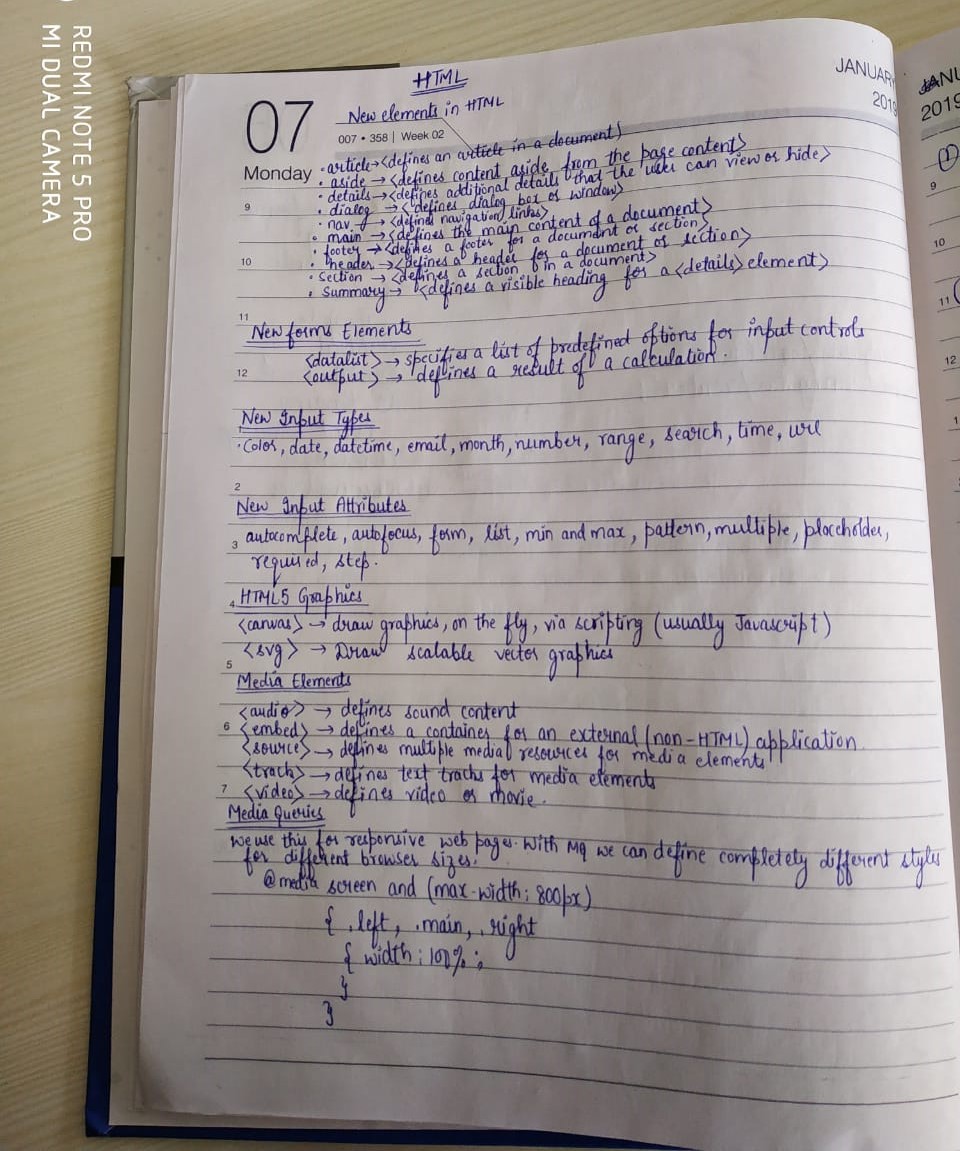 REDMI NOTE 5 PRO
MI DUAL CAMERA
HTML
JANUARY
2019
07
New elements in HTML
007 • 358 | Week 02
Monday
• article → <defines an article in a document>
• aside → <defines content aside from the page content>
• details → <defines additional details that the user can view or hide>
9
• dialog → <defines dialog box or window>
• nav → <defines navigation links>
• main → <defines the main content of a document>
• footer → <defines a footer for a document or section>
10
• header → <defines a header for a document or section>
• section → <defines a section in a document>
• Summary → <defines a visible heading for a <details> element>
11
New forms Elements
<datalist> → specifies a list of predefined options for input controls
12
<output> → defines a result of a calculation.
New Input Types
• Color, date, datetime, email, month, number, range, search, time, url
2
New Input Attributes
3
autocomplete, autofocus, form, list, min and max, pattern, multiple, placeholder,
required, step.
4
HTML5 Graphics
<canvas> → draw graphics, on the fly, via scripting (usually Javascript)
<svg> → Draw scalable vector graphics
5
Media Elements
<audio> → defines sound content
6
<embed> → defines a container for an external (non-HTML) application
<source> → defines multiple media resources for media elements
<track> → defines text tracks for media elements
7
<video> → defines video or movie.
Media Queries
we use this for responsive web pages. With MQ we can define completely different styles
for different browser sizes.
@media screen and (max-width: 800px)
{ .left, .main, .right
{ width: 100%;
}
}
JANU
2019
1
9
10
11
12
1